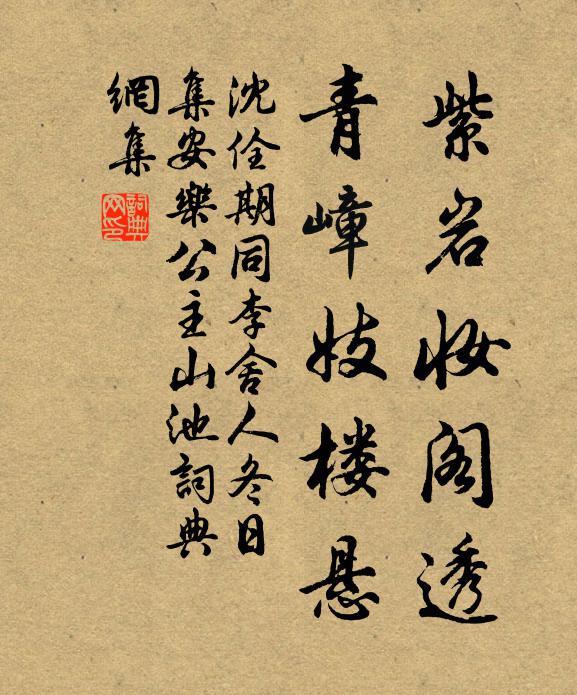 紫岩妆阁透
青嶂妓楼悬
沈佺期同李舍人冬日
集安樂公主山池詞典
網集
詞典
网印